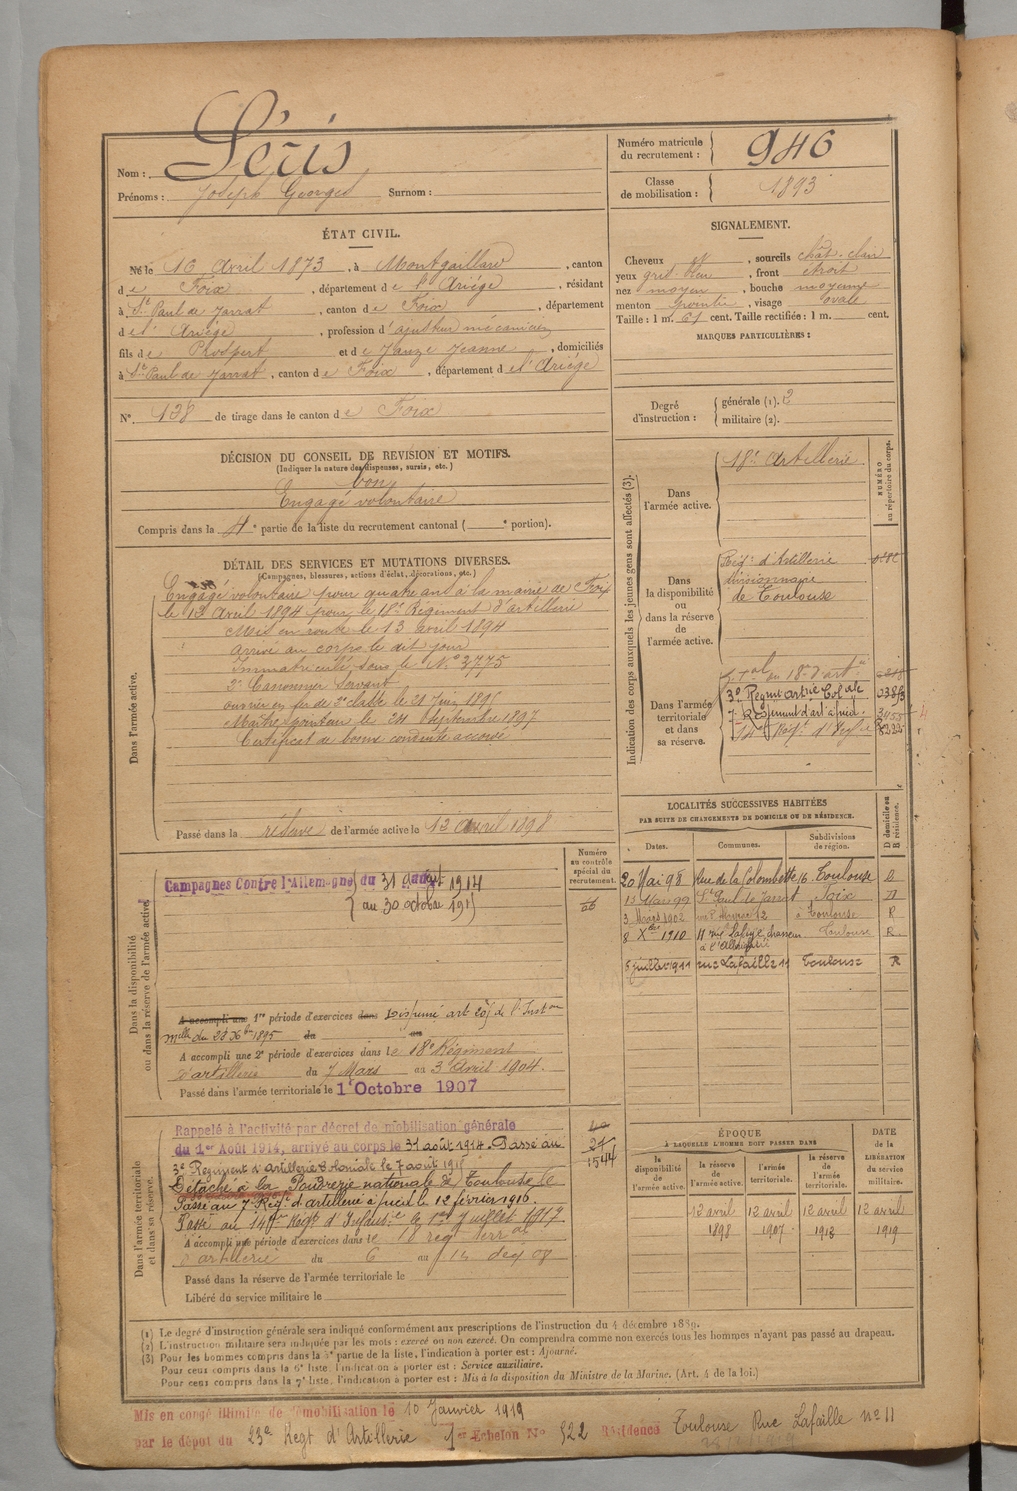 Nom : Léris
Prénoms : Joseph Georges Surnom :
Numéro matricule du recrutement : 946
Classe de mobilisation : 1893
ÉTAT CIVIL.
Né le 16 Avril 1873, à Montgaillard, canton
de Foix, département de l'Ariège, résidant
à St Paul de Jarrat, canton de Foix, département
de l'Ariège, profession d'ajusteur mécanicien
fils de Prospert et de Janze Jeanne, domiciliés
à St Paul de Jarrat, canton de Foix, département de l'Ariège
N° 138 de tirage dans le canton de Foix
SIGNALEMENT.
Cheveux et, sourcils chât. clair
yeux gris bleu, front étroit
nez moyen, bouche moyenne
menton pointu, visage ovale
Taille : 1 m. 61 cent. Taille rectifiée : 1 m. cent.
MARQUES PARTICULIÈRES :
Degré d'instruction : générale (1). 2
militaire (2).
DÉCISION DU CONSEIL DE REVISION ET MOTIFS.
(Indiquer la nature des dispenses, sursis, etc.)
bon
Engagé volontaire
Compris dans la 4e partie de la liste du recrutement cantonal ( e portion).
DÉTAIL DES SERVICES ET MUTATIONS DIVERSES.
(Campagnes, blessures, actions d'éclat, décorations, etc.)
Dans l'armée active.
Engagé volontaire pour quatre ans à la mairie de Foix
le 13 Avril 1894 pour le 18e Régiment d'artillerie
Mis en route le 13 avril 1894
Arrivé au corps le dit jour
Immatriculé sous le N° 3775
2e Canonnier Servant
ouvrier en fer de 2e classe le 21 Juin 1895
Maître pointeur le 24 Septembre 1897
Certificat de bonne conduite accordé
Passé dans la réserve de l'armée active le 13 Avril 1898
Indication des corps auxquels les jeunes gens sont affectés (3).
NUMÉRO au répertoire du corps.
Dans l'armée active.
18e Artillerie
Dans la disponibilité ou dans la réserve de l'armée active.
Régt d'Artillerie
divisionnaire
de Toulouse
Dans l'armée territoriale et dans sa réserve.
3e Régiment artrie Colale
7e Régiment d'art. à pied.
14e Régt d'Inf.ie 8222
LOCALITÉS SUCCESSIVES HABITÉES
PAR SUITE DE CHANGEMENTS DE DOMICILE OU DE RÉSIDENCE.
Dates. Communes. Subdivisions de région. D domicile ou R résidence.
20 Mai 98 Rue de la Colombette 16 Toulouse R
13 Mars 99 St Paul de Jarrat Foix D
3 Mars 1902 12 à Toulouse R
8 Xbre 1910 11 rue Lafaye Toulouse R
5 juillet 1911 rue Lafaille 11 Toulouse R
Dans la disponibilité ou dans la réserve de l'armée active
Numéro au contrôle spécial du recrutement.
Campagnes Contre l'Allemagne du 31 août 1914
au 30 octobre 1915
A accompli une 1re période d'exercices dans Dispensé art 203 de l'Inston
mlle du 28 Xbre 1895 du au
A accompli une 2e période d'exercices dans le 18e Régiment
d'artillerie du 7 Mars au 3 Avril 1904.
Passé dans l'armée territoriale le 1 Octobre 1907
Dans l'armée territoriale et dans sa réserve.
Rappelé à l'activité par décret de mobilisation générale
du 1er Août 1914, arrivé au corps le 31 août 1914. Passé au
3e Régiment d'Artillerie Coloniale le 7 août 1915
Détaché à la Poudrerie nationale de Toulouse le
Passé au 7e Régt d'artillerie à pied le 12 février 1916.
Passé au 14me Régt d'Infantie le 1er Juillet 1917
A accompli une période d'exercices dans le 18 reg terr al
d'artillerie du 6 au 14 dec 08
Passé dans la réserve de l'armée territoriale le
Libéré du service militaire le
1544
ÉPOQUE
À LAQUELLE L'HOMME DOIT PASSER DANS
DATE de la LIBÉRATION du service militaire.
la disponibilité de l'armée active. la réserve de l'armée active. l'armée territoriale. la réserve de l'armée territoriale.
12 avril 1898 12 avril 1907 12 avril 1913 12 avril 1919
(1) Le degré d'instruction générale sera indiqué conformément aux prescriptions de l'instruction du 4 décembre 1889.
(2) L'instruction militaire sera indiquée par les mots : exercé ou non exercé. On comprendra comme non exercés tous les hommes n'ayant pas passé au drapeau.
(3) Pour les hommes compris dans la 5e partie de la liste, l'indication à porter est : Ajourné.
Pour ceux compris dans la 6e liste, l'indication à porter est : Service auxiliaire.
Pour ceux compris dans la 7e liste, l'indication à porter est : Mis à la disposition du Ministre de la Marine. (Art. 4 de la loi.)
Mis en congé illimité de démobilisation le 10 Janvier 1919
par le dépôt du 23e Regt d'Artillerie 1er Echelon N° 522 Résidence Toulouse Rue Lafaille n° 11